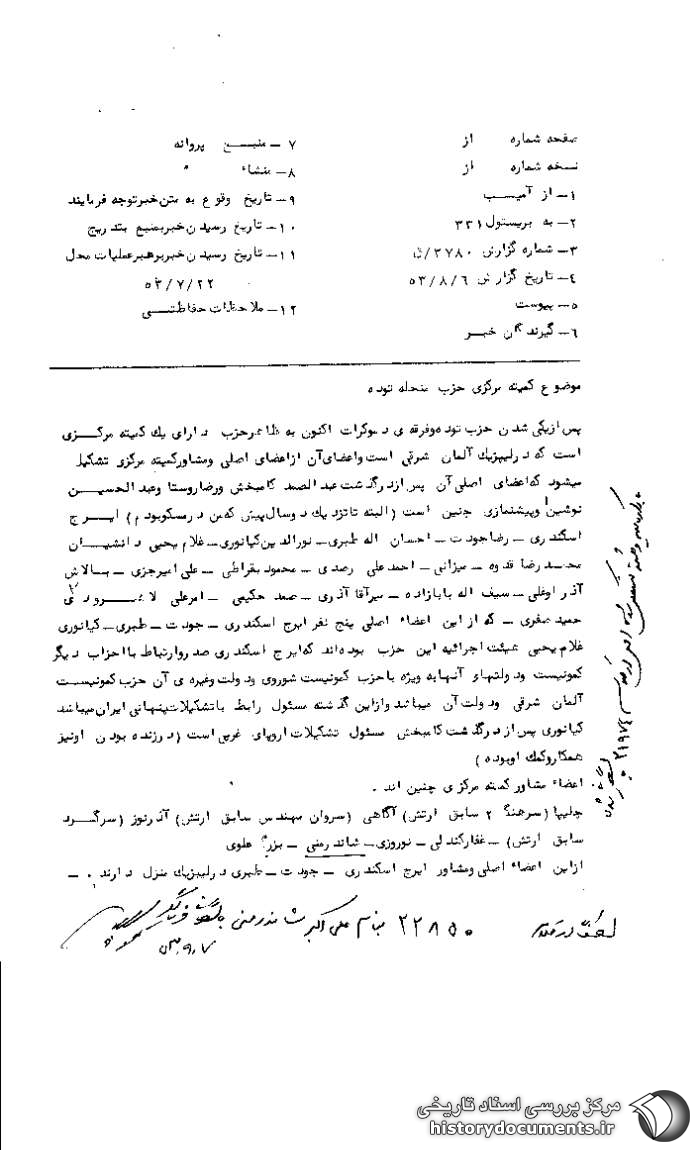 صفحه شماره از
نسخه شماره از
۱- از آمیسب
۲- به بریستول ۳۳۱
۳- شماره گزارش ۳۷۸۰/ش
۴- تاریخ گزارش ۵۳/۸/۶
۵- پیوست
۶- گیرندگان خبر
۷- منبع پروانه
۸- منشاء "
۹- تاریخ وقوع به متن خبر توجه فرمایند
۱۰- تاریخ رسیدن خبر بمنبع بتدریج
۱۱- تاریخ رسیدن خبر برهبر عملیات محل
۵۳/۷/۲۲
۱۲- ملاحظات حفاظتی
موضوع کمیته مرکزی حزب منحله توده
پس از یکی شدن حزب توده وفرقه ی دموکرات اکنون به ظاهر حزب دارای یك کمیته مرکزی
است که در لیپزیك آلمان شرقی است واعضای آن از اعضای اصلی ومشاور کمیته مرکزی تشکیل
میشود که اعضای اصلی آن پس از درگذشت عبدالصمد کامبخش ورضا روستا وعبدالحسین
نوشین وپیشنمازی چنین است (البته تا نزدیك دوسال پیش که من در مسکو بودم) ایرج
اسکندری - رضا جودت - احسان اله طبری - نورالدین کیانوری - غلام یحیی دانشیان
محمد رضا قدوه - میزانی - احمد علی رصدی - محمود بقراطی - علی امیرخیزی - بالاش
آذر اوغلی - سیف اله بابازاده - میرآقا آذری - صمد حکیمی - امرعلی لاهرودی
حمید صفری - که از این اعضاء اصلی پنج نفر ایرج اسکندری - جودت - طبری - کیانوری
غلام یحیی هیئت اجرائیه این حزب بوده اند که ایرج اسکندری صدر وارتباط با احزاب دیگر
کمونیست ودولتهای آنها به ویژه با حزب کمونیست شوروی ودولت وغیره ی آن حزب کمونیست
آلمان شرقی ودولت آن میباشد وازاین گذشته مسئول رابط با تشکیلات پنهانی ایران میباشد
کیانوری پس از درگذشت کامبخش مسئول تشکیلات اروپای غربی است (در زنده بودن اونیز
همکار وکمك او بوده)
اعضاء مشاور کمیته مرکزی چنین اند .
چلیپا (سرهنگ ۲ سابق ارتش) آگاهی (سروان مهندس سابق ارتش) آذرنور (سرگرد
سابق ارتش) - غفار کندلی - نوروزی - شاندرمنی - بزرگ علوی
ازاین اعضاء اصلی ومشاور ایرج اسکندری - جودت - طبری در لیپزیك منزل دارند . -
۲۲۸۵۰ بنام علی اکبر شاندرمنی
۲۱۹۷۴
مرکز بررسی اسناد تاریخی
historydocuments.ir